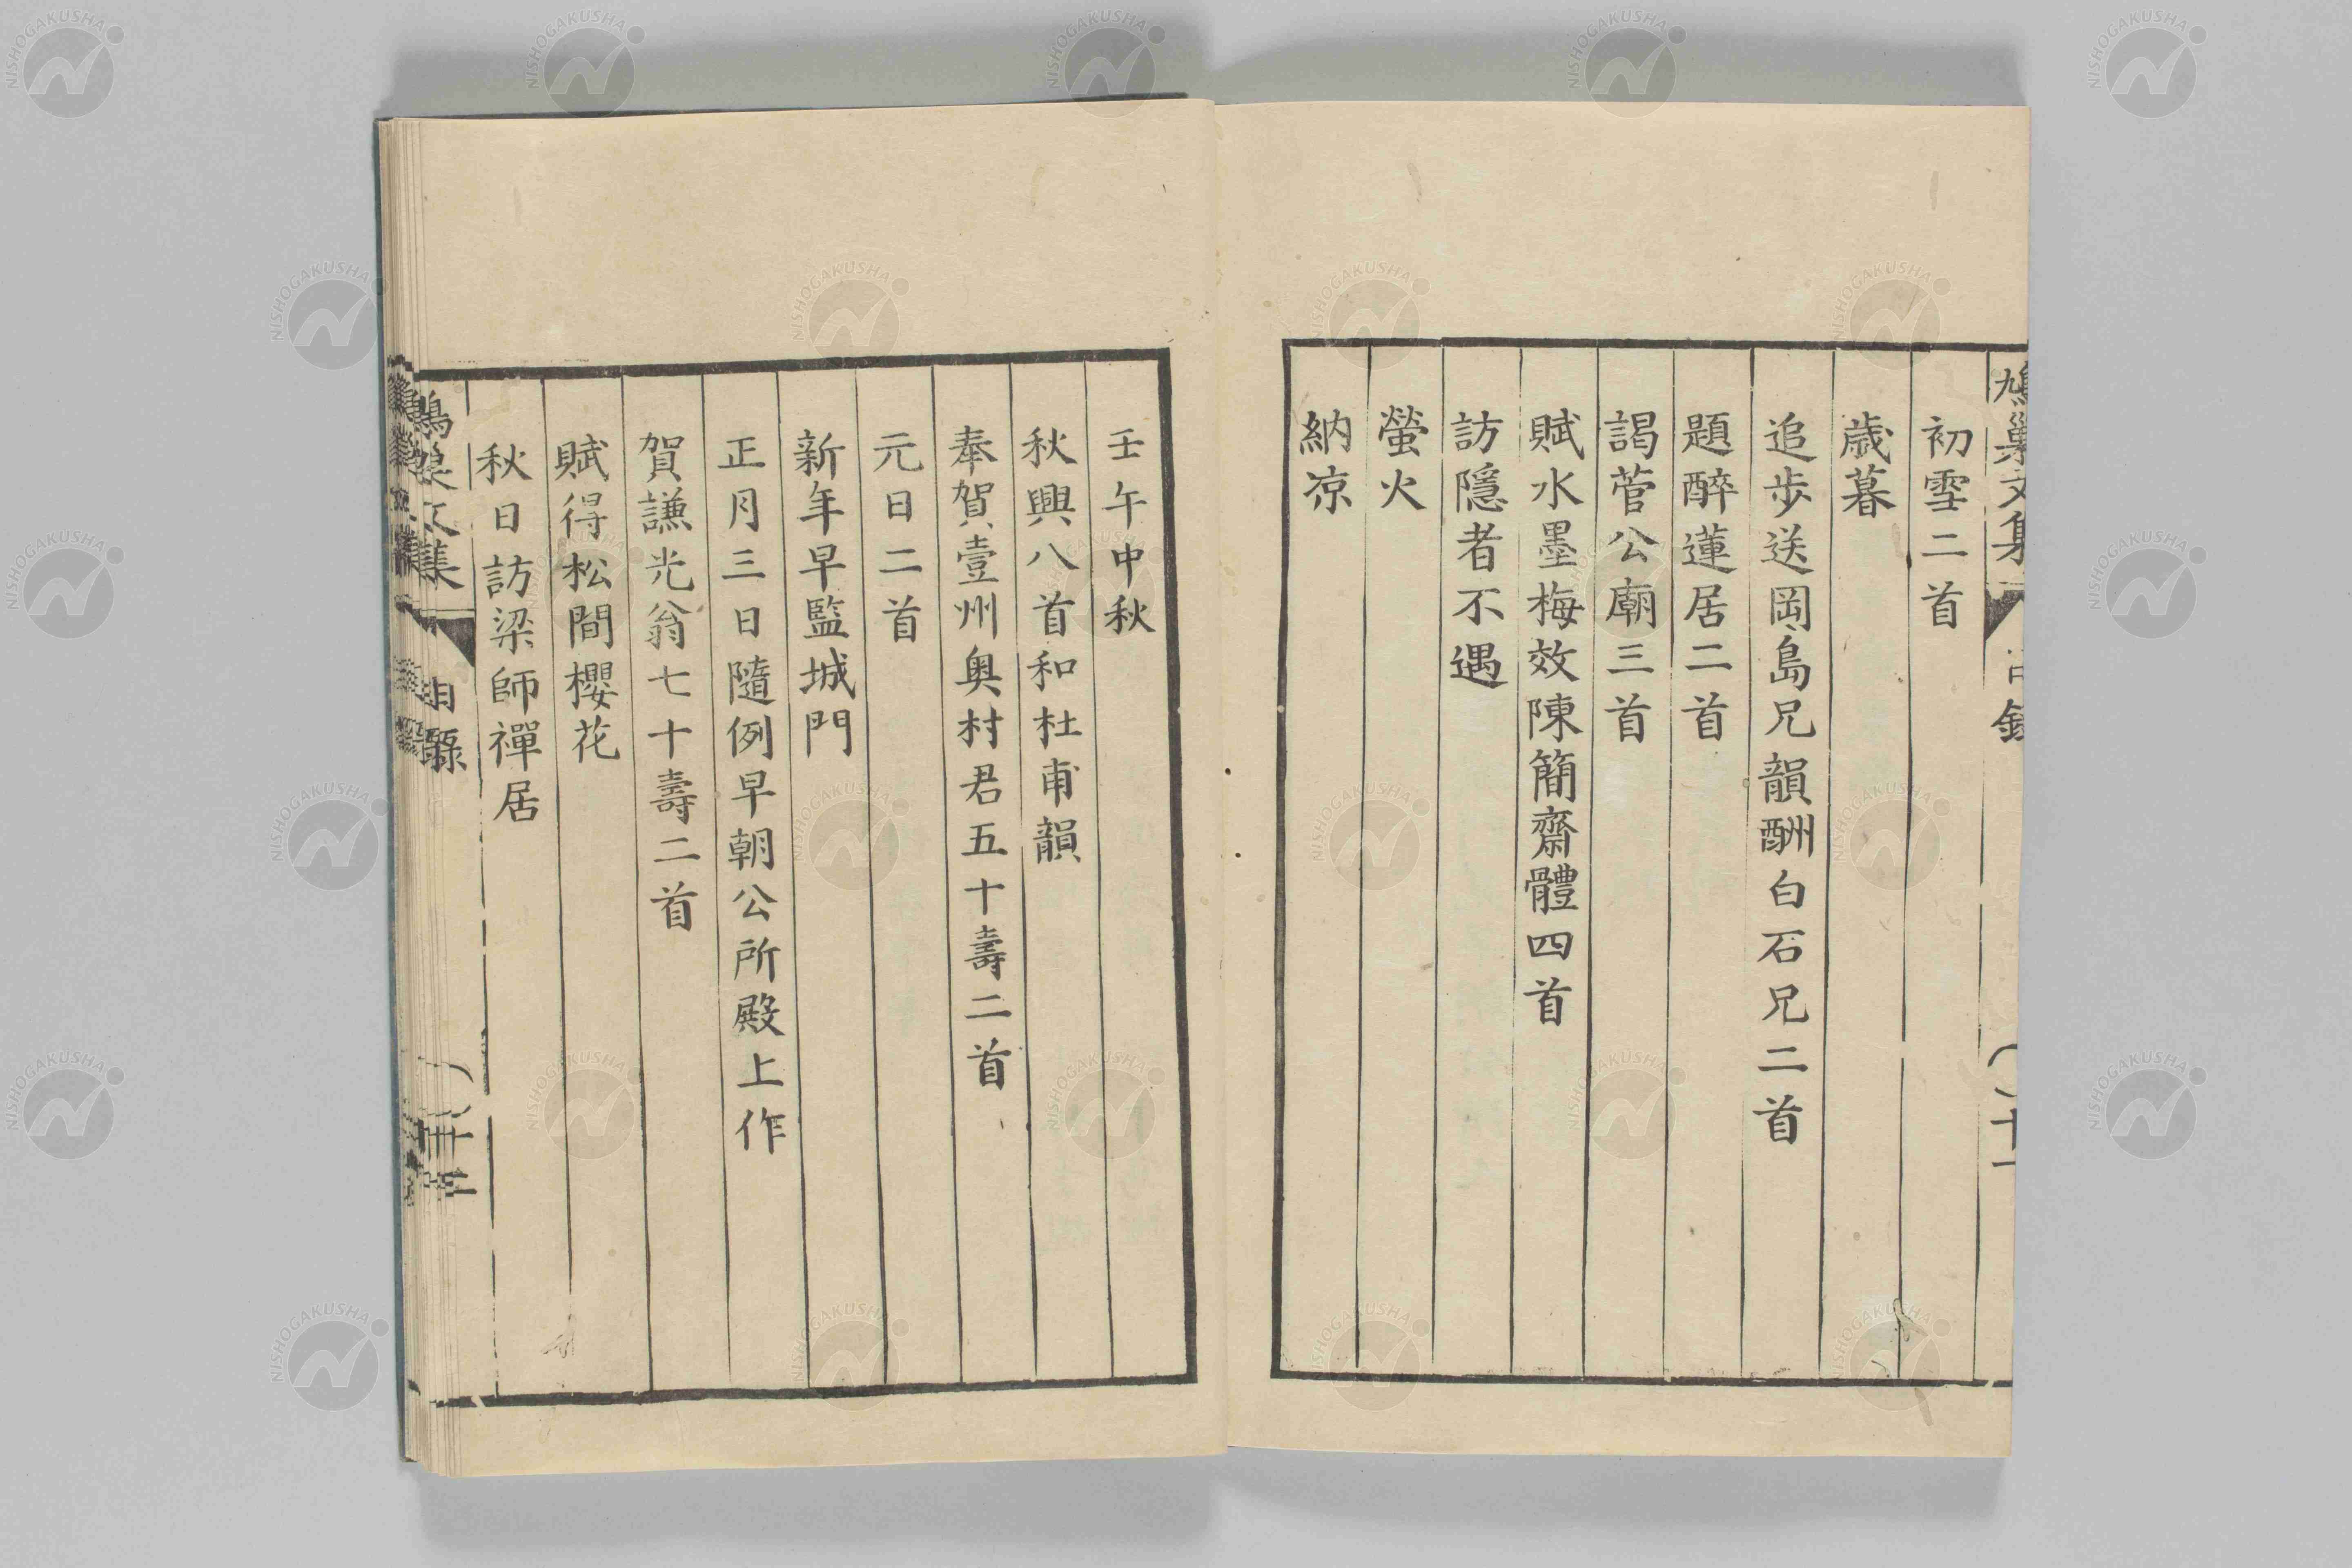 鳩巢文集
目錄
十一
初雪二首
歲暮
追步送岡島兄韻酬白石兄二首
題醉蓮居二首
謁菅公廟三首
賦水墨梅效陳簡齋體四首
訪隱者不遇
螢火
納凉
壬午中秋
秋興八首和杜甫韻
奉賀壹州奧村君五十壽二首
元日二首
新年早早監城門
正月三日隨例早朝公所殿上作
賀謙光翁七十壽二首
賦得松間櫻花
秋日訪梁師禪居
鳩巢文集
目錄
NISHOGAKUSHA